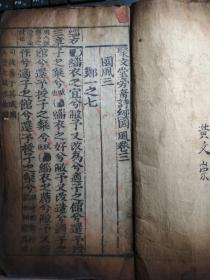 黃文崇
文堂旁音詩經國風卷三
國風三
鄭一之七
緇衣之宜兮敝予又改為兮適子之館兮還予授
子之粲兮緇衣之好兮敝予又改造兮適子之
館兮還予授子之粲兮緇衣之蓆兮敝予又改
作兮適子之館兮還予授子之粲兮